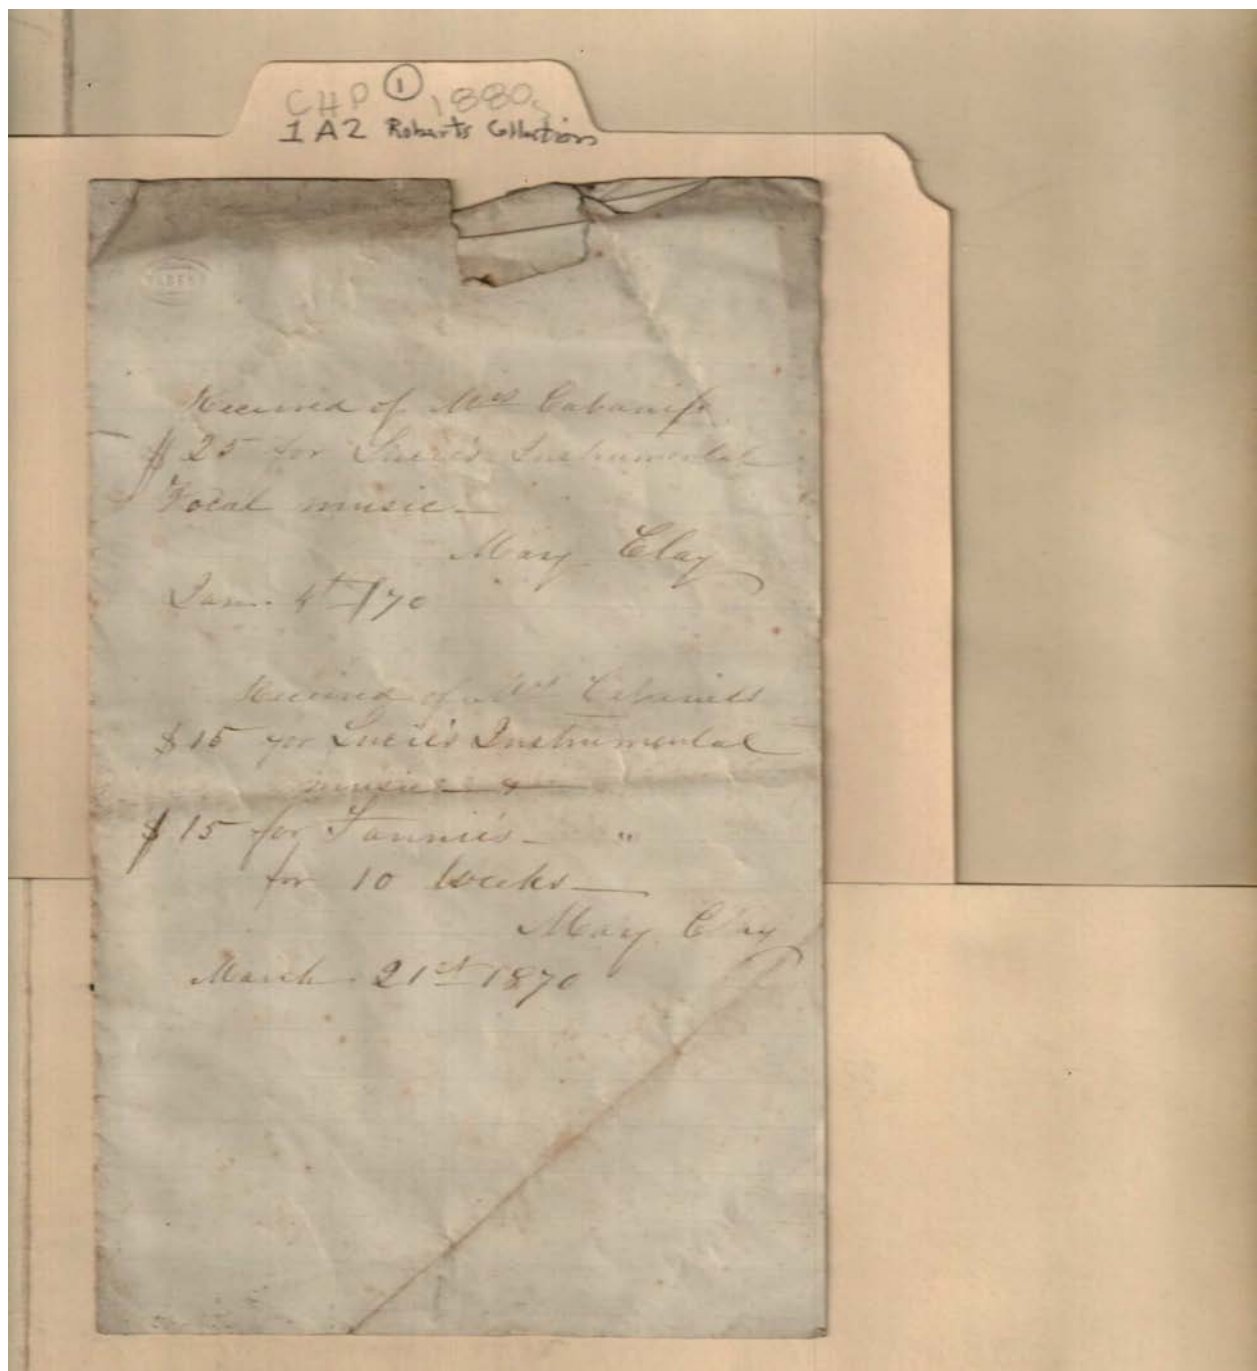 CHP ① 1880s
1A2 Roberts Collection
Received of Mrs Cabaniss
$25 for Lucie's Instrumental
Vocal music —
Mary Clay
Jan. 4th /70
Received of Mrs Cabaniss
$15 for Lucie's Instrumental
music &
$15 for Fannie's — "
for 10 weeks —
Mary Clay
March 21st 1870